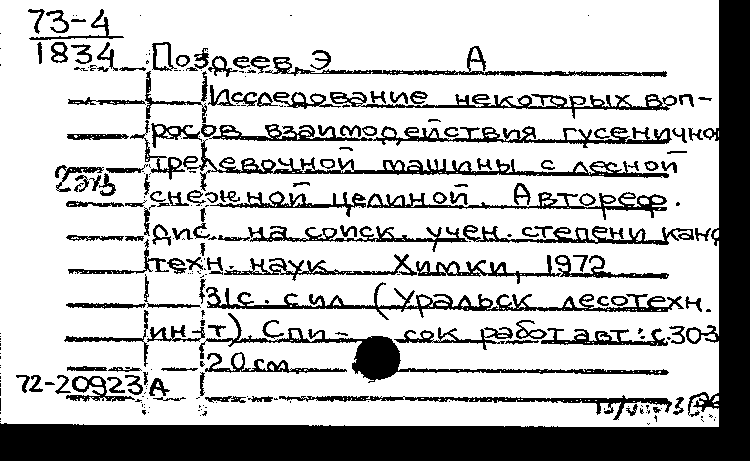 73-4
1834
Поздеев, Э А
Исследование некоторых воп-
росов взаимодействия гусенично
трелевочной машины с лесной
2экз
снежной целиной. Автореф.
дис. на соиск. учен. степени канд
техн. наук Химки, 1972
31с. с ил (Уральск лесотехн.
ин-т). Спи- сок работ авт: с.30-3
20 см
72-20923 А